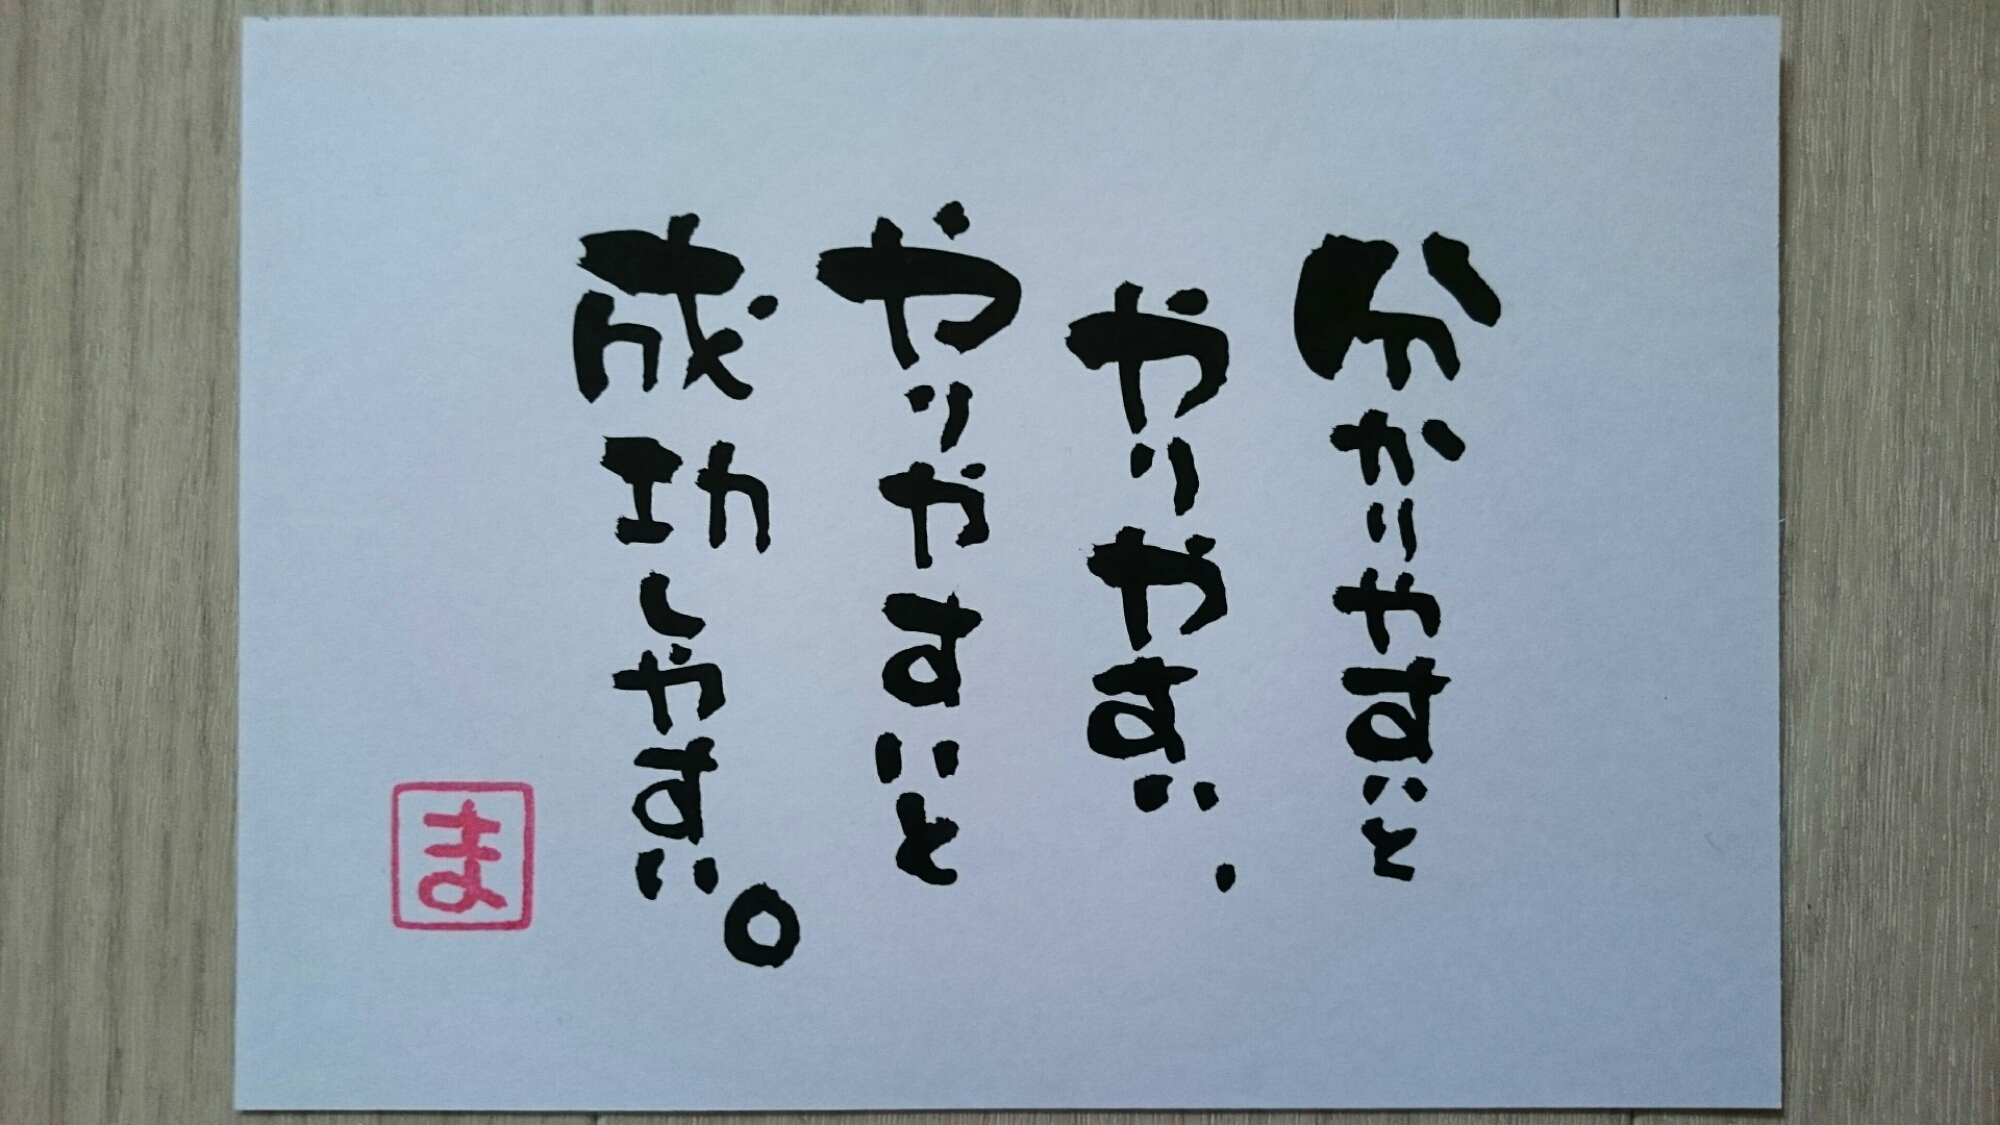 分かりやすいと
やりやすい、
やりやすいと
成功しやすい。
ま